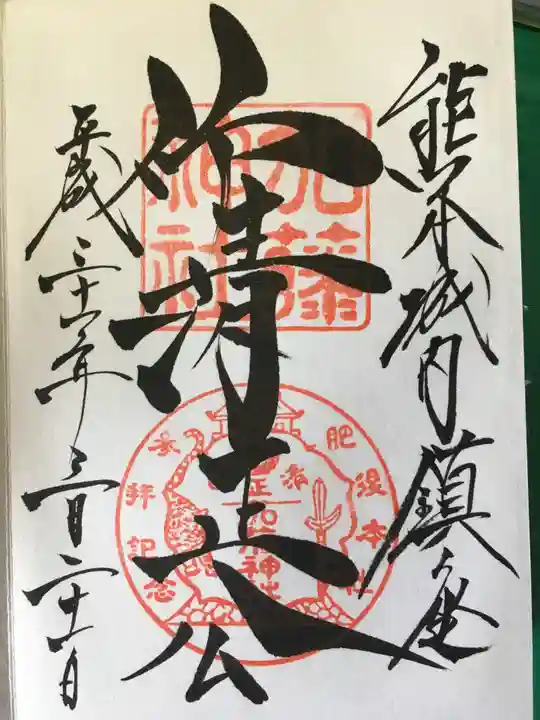 熊本城内鎮座
仰清正公
平成三十一年三月二十一日
加藤
神社
肥後本社
参拝記念
加藤神社